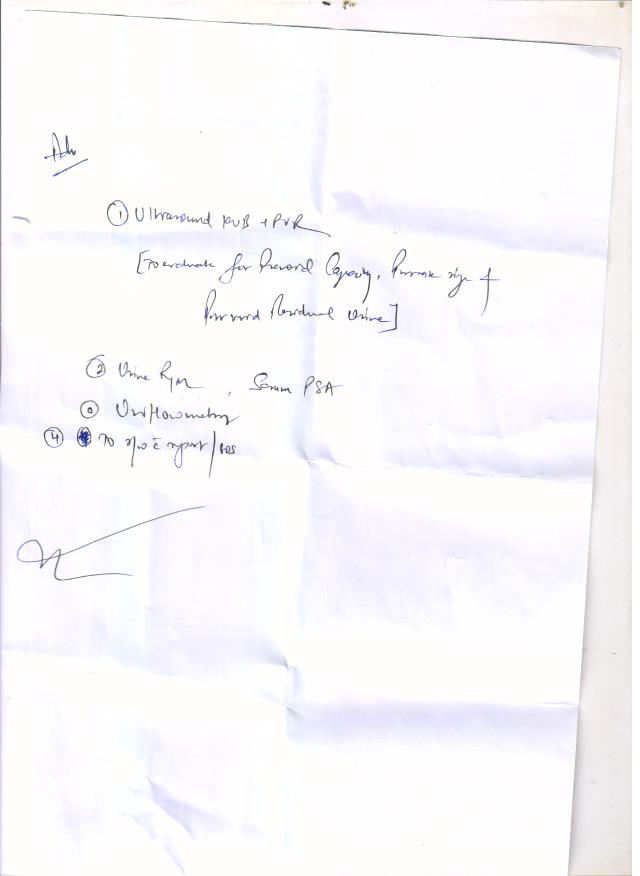 Adv
① Ultrasound KUB + PVR
[To evaluate for Prevoid Capacity, Prostate size &
Postvoid Residual Urine]
② Urine R/M , Serum PSA
③ Uroflowmetry
④ To r/w c̄ report / SOS